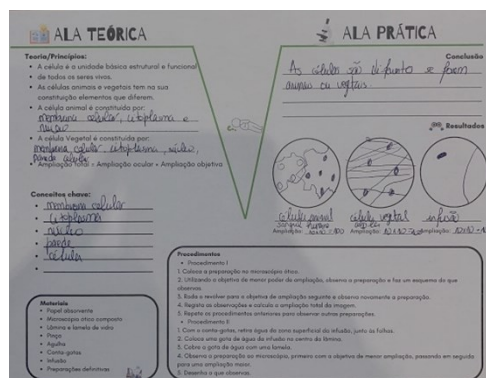 ALA TEÓRICA
Teoria/Princípios:
• A célula é a unidade básica estrutural e funcional
• de todos os seres vivos.
• As células animais e vegetais tem na sua
constituição elementos que diferem.
• A célula animal é constituída por:
membrana celular, citoplasma e
núcleo
• A célula Vegetal é constituída por:
membrana celular, citoplasma, núcleo,
parede celular
• Ampliação total = Ampliação ocular × Ampliação objetiva
Conceitos chave:
• membrana celular
• citoplasma
• núcleo
• parede
• célula
•
Materiais
• Papel absorvente
• Microscópio ótico composto
• Lâmina e lamela de vidro
• Pinça
• Agulha
• Conta-gotas
• Infusão
• Preparações definitivas
ALA PRÁTICA
Conclusão
As células são se forem
animais ou vegetais.
Resultados
célula animal
sangue humano
Ampliação:
célula vegetal
Ampliação:
infusão
Ampliação:
Procedimentos
• Procedimento I
1. Coloca a preparação no microscópio ótico.
2. Utilizando a objetiva de menor poder de ampliação, observa a preparação e faz um esquema do que
observas.
3. Roda o revólver para a objetiva de ampliação seguinte e observa novamente a preparação.
4. Regista as observações e calcula a ampliação total da imagem.
5. Repete os procedimentos anteriores para observar outras preparações.
• Procedimento II
1. Com o conta-gotas, retira água da zona superficial da infusão, junto às folhas.
2. Coloca uma gota de água da infusão no centro da lâmina.
3. Cobre a gota de água com uma lamela.
4. Observa a preparação ao microscópio, primeiro com a objetiva de menor ampliação, passando em seguida
para uma ampliação maior.
5. Desenha o que observas.